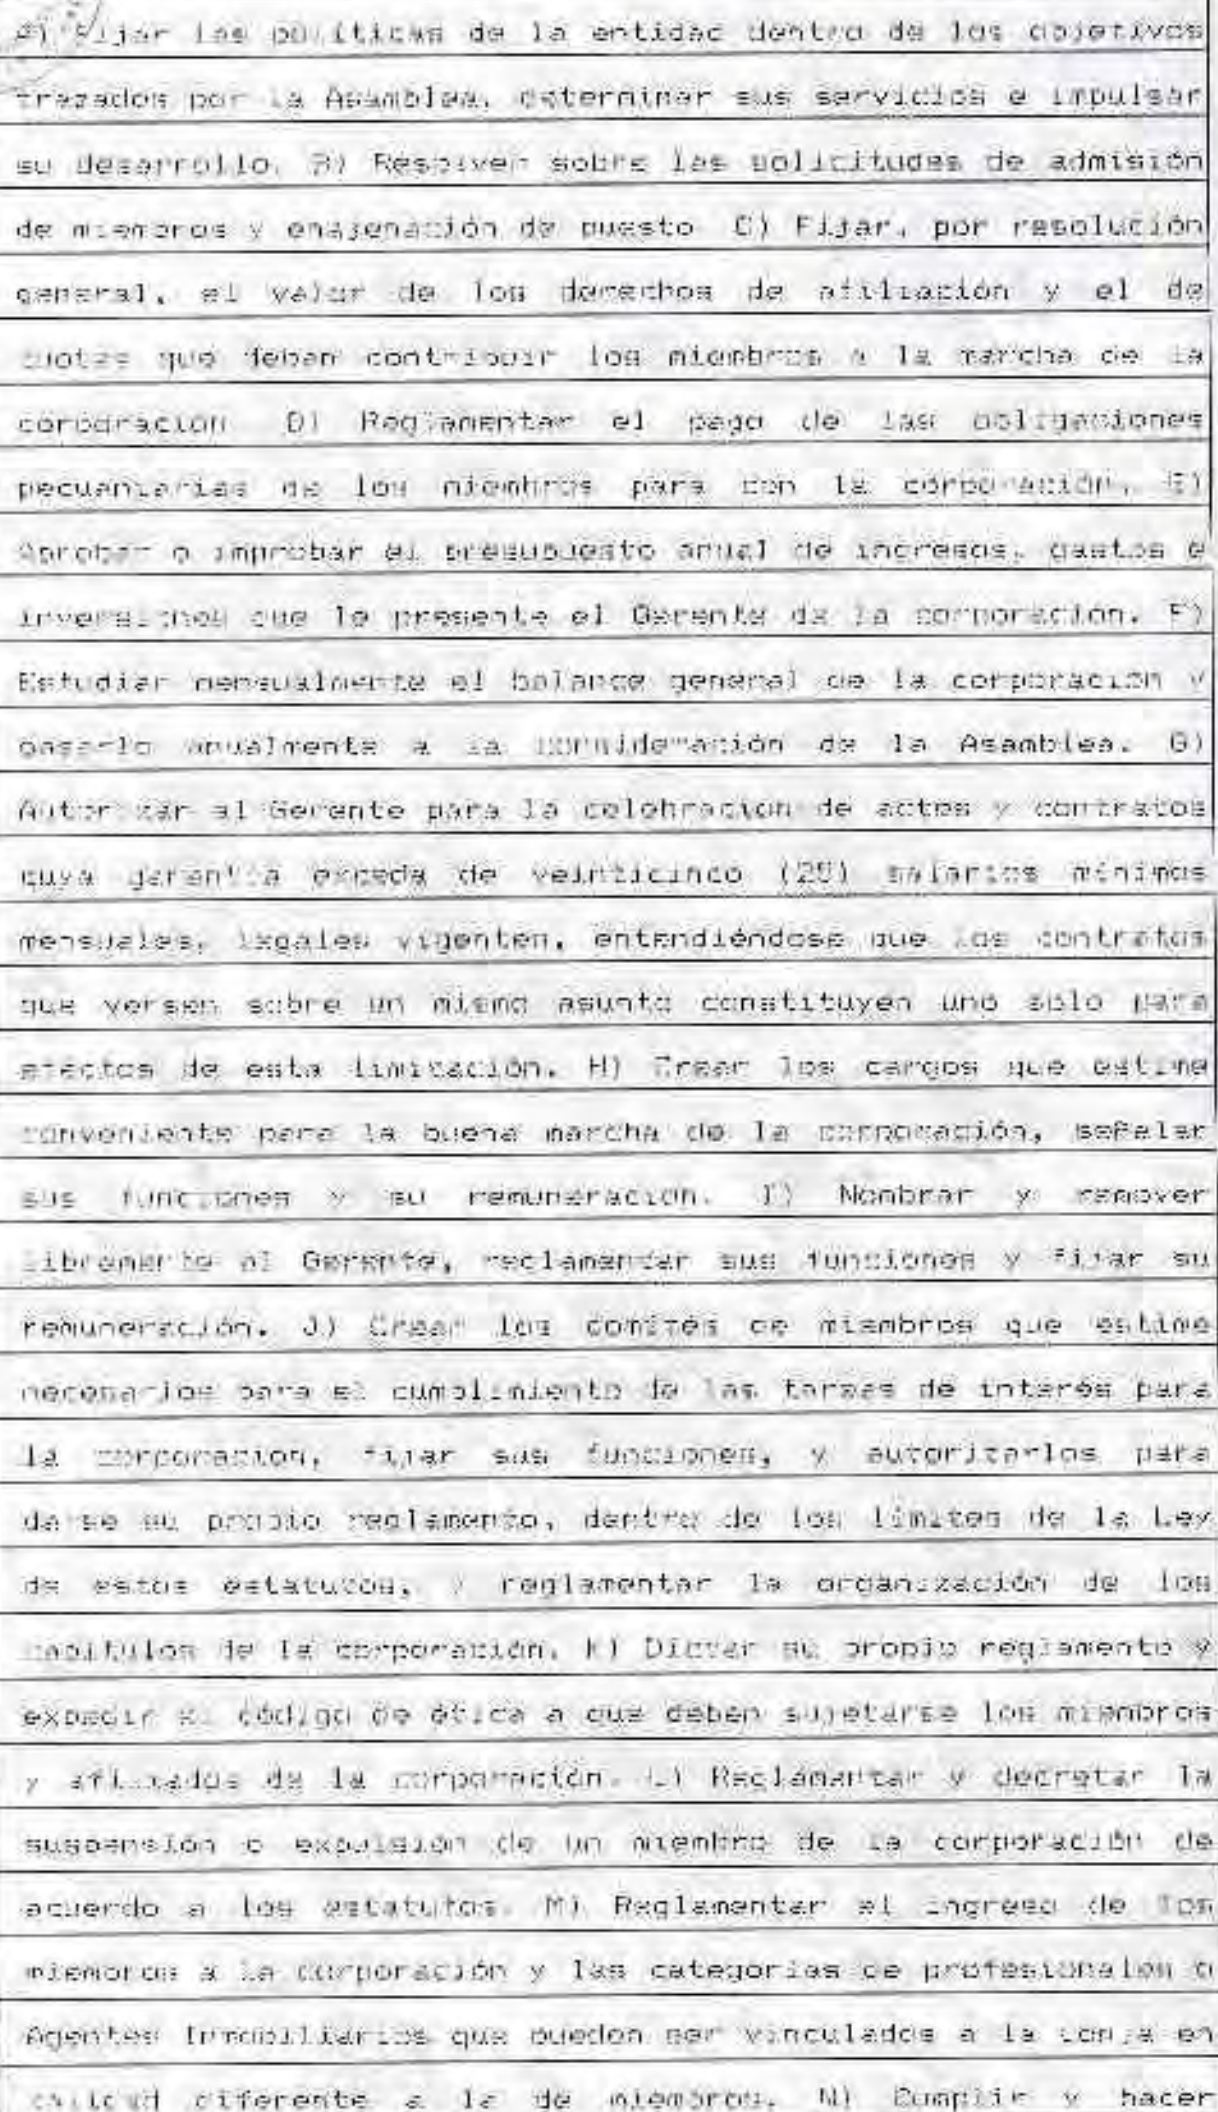 A) Fijar las políticas de la entidad dentro de los objetivos
trazados por la Asamblea, determinar sus servicios e impulsar
su desarrollo. B) Resolver sobre las solicitudes de admisión
de miembros y enajenación de puesto C) Fijar, por resolución
general, el valor de los derechos de afiliación y el de
cuotas que deben contribuir los miembros a la marcha de la
corporación D) Reglamentar el pago de las obligaciones
pecuniarias de los miembros para con la corporación. E)
Aprobar o improbar el presupuesto anual de ingresos, gastos e
inversiones que le presente el Gerente de la corporación. F)
Estudiar mensualmente el balance general de la corporación y
pasarlo anualmente a la consideración de la Asamblea. G)
Autorizar al Gerente para la celebración de actos y contratos
cuya garantía exceda de veinticinco (25) salarios mínimos
mensuales, legales vigentes, entendiéndose que los contratos
que versen sobre un mismo asunto constituyen uno solo para
efectos de esta limitación. H) Crear los cargos que estime
conveniente para la buena marcha de la corporación, señalar
sus funciones y su remuneración. I) Nombrar y remover
libremente al Gerente, reglamentar sus funciones y fijar su
remuneración. J) Crear los comités de miembros que estime
necesarios para el cumplimiento de las tareas de interés para
la corporación, fijar sus funciones, y autorizarlos para
darse su propio reglamento, dentro de los límites de la Ley
de estos estatutos, y reglamentar la organización de los
capítulos de la corporación. K) Dictar su propio reglamento y
expedir el código de ética a que deben sujetarse los miembros
y afiliados de la corporación. L) Reglamentar y decretar la
suspensión o expulsión de un miembro de la corporación de
acuerdo a los estatutos. M) Reglamentar el ingreso de los
miembros a la corporación y las categorías de profesionales o
Agentes Inmobiliarios que pueden ser vinculados a la Lonja en
calidad diferente a la de miembros. N) Cumplir y hacer